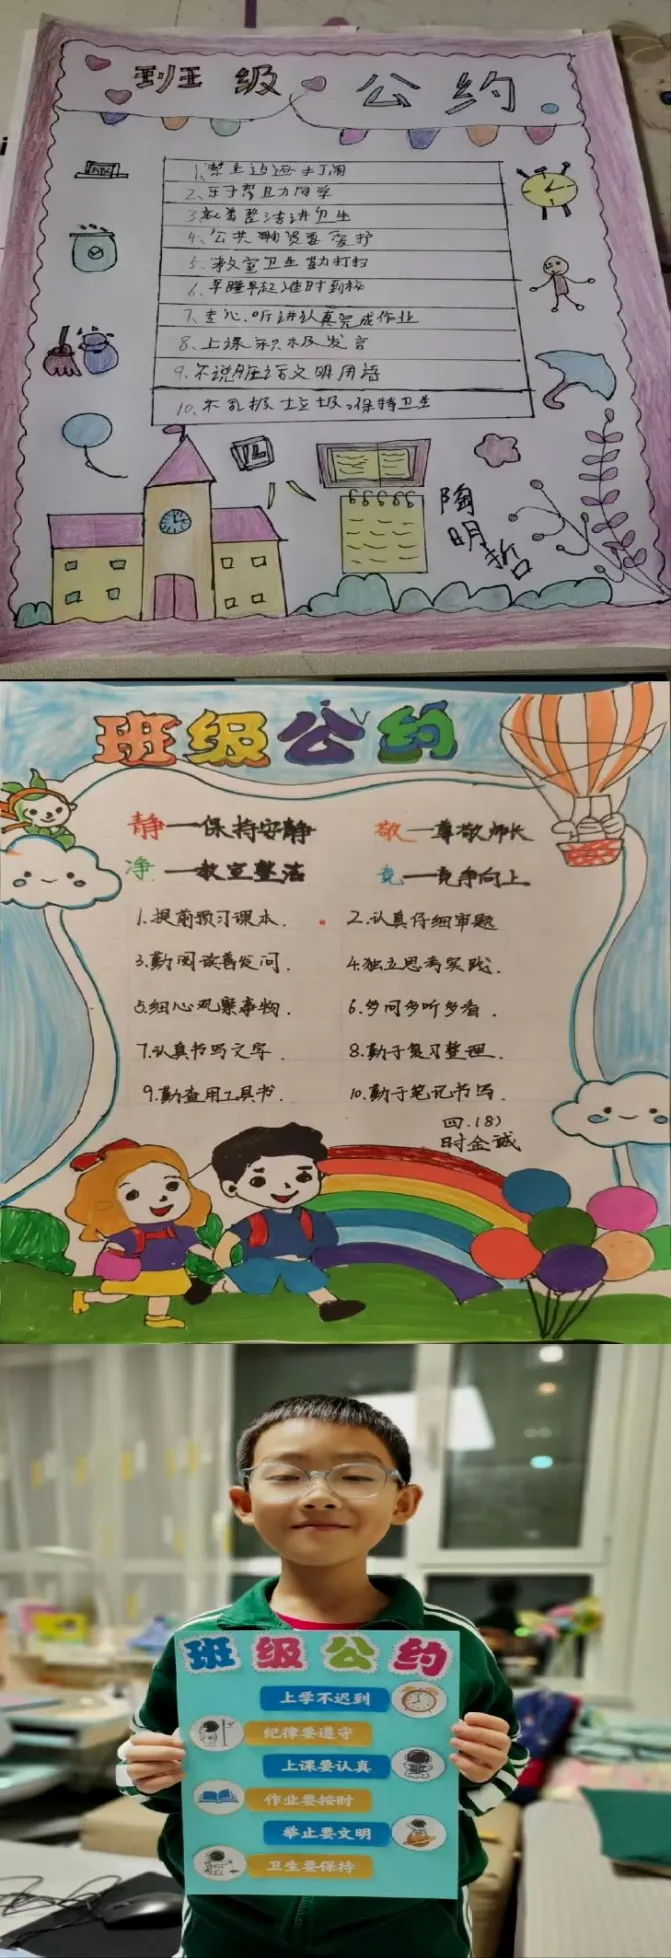 班级 公约
1、禁止追逐打闹
2、乐于帮且力同学
3、衣着整洁讲卫生
4、公共物资要爱护
5、教室卫生勤打扫
6、早睡早起准时到校
7、专心听讲认真完成作业
8、上课积极发言
9、不说脏话文明用语
10、不乱扔垃圾,保持卫生
陶明哲
班级公约
静—保持安静 敬—尊敬师长
净—教室整洁 竞—竞争向上
1.提前预习课本. 2.认真仔细审题
3.勤阅读善发问. 4.独立思考实践.
5.细心观察事物. 6.多问多听多看.
7.认真书写文字. 8.勤于复习整理.
9.勤查用工具书. 10.勤于笔记书写.
四.(8)
时金诚
班级公约
上学不迟到
纪律要遵守
上课要认真
作业要按时
举止要文明
卫生要保持